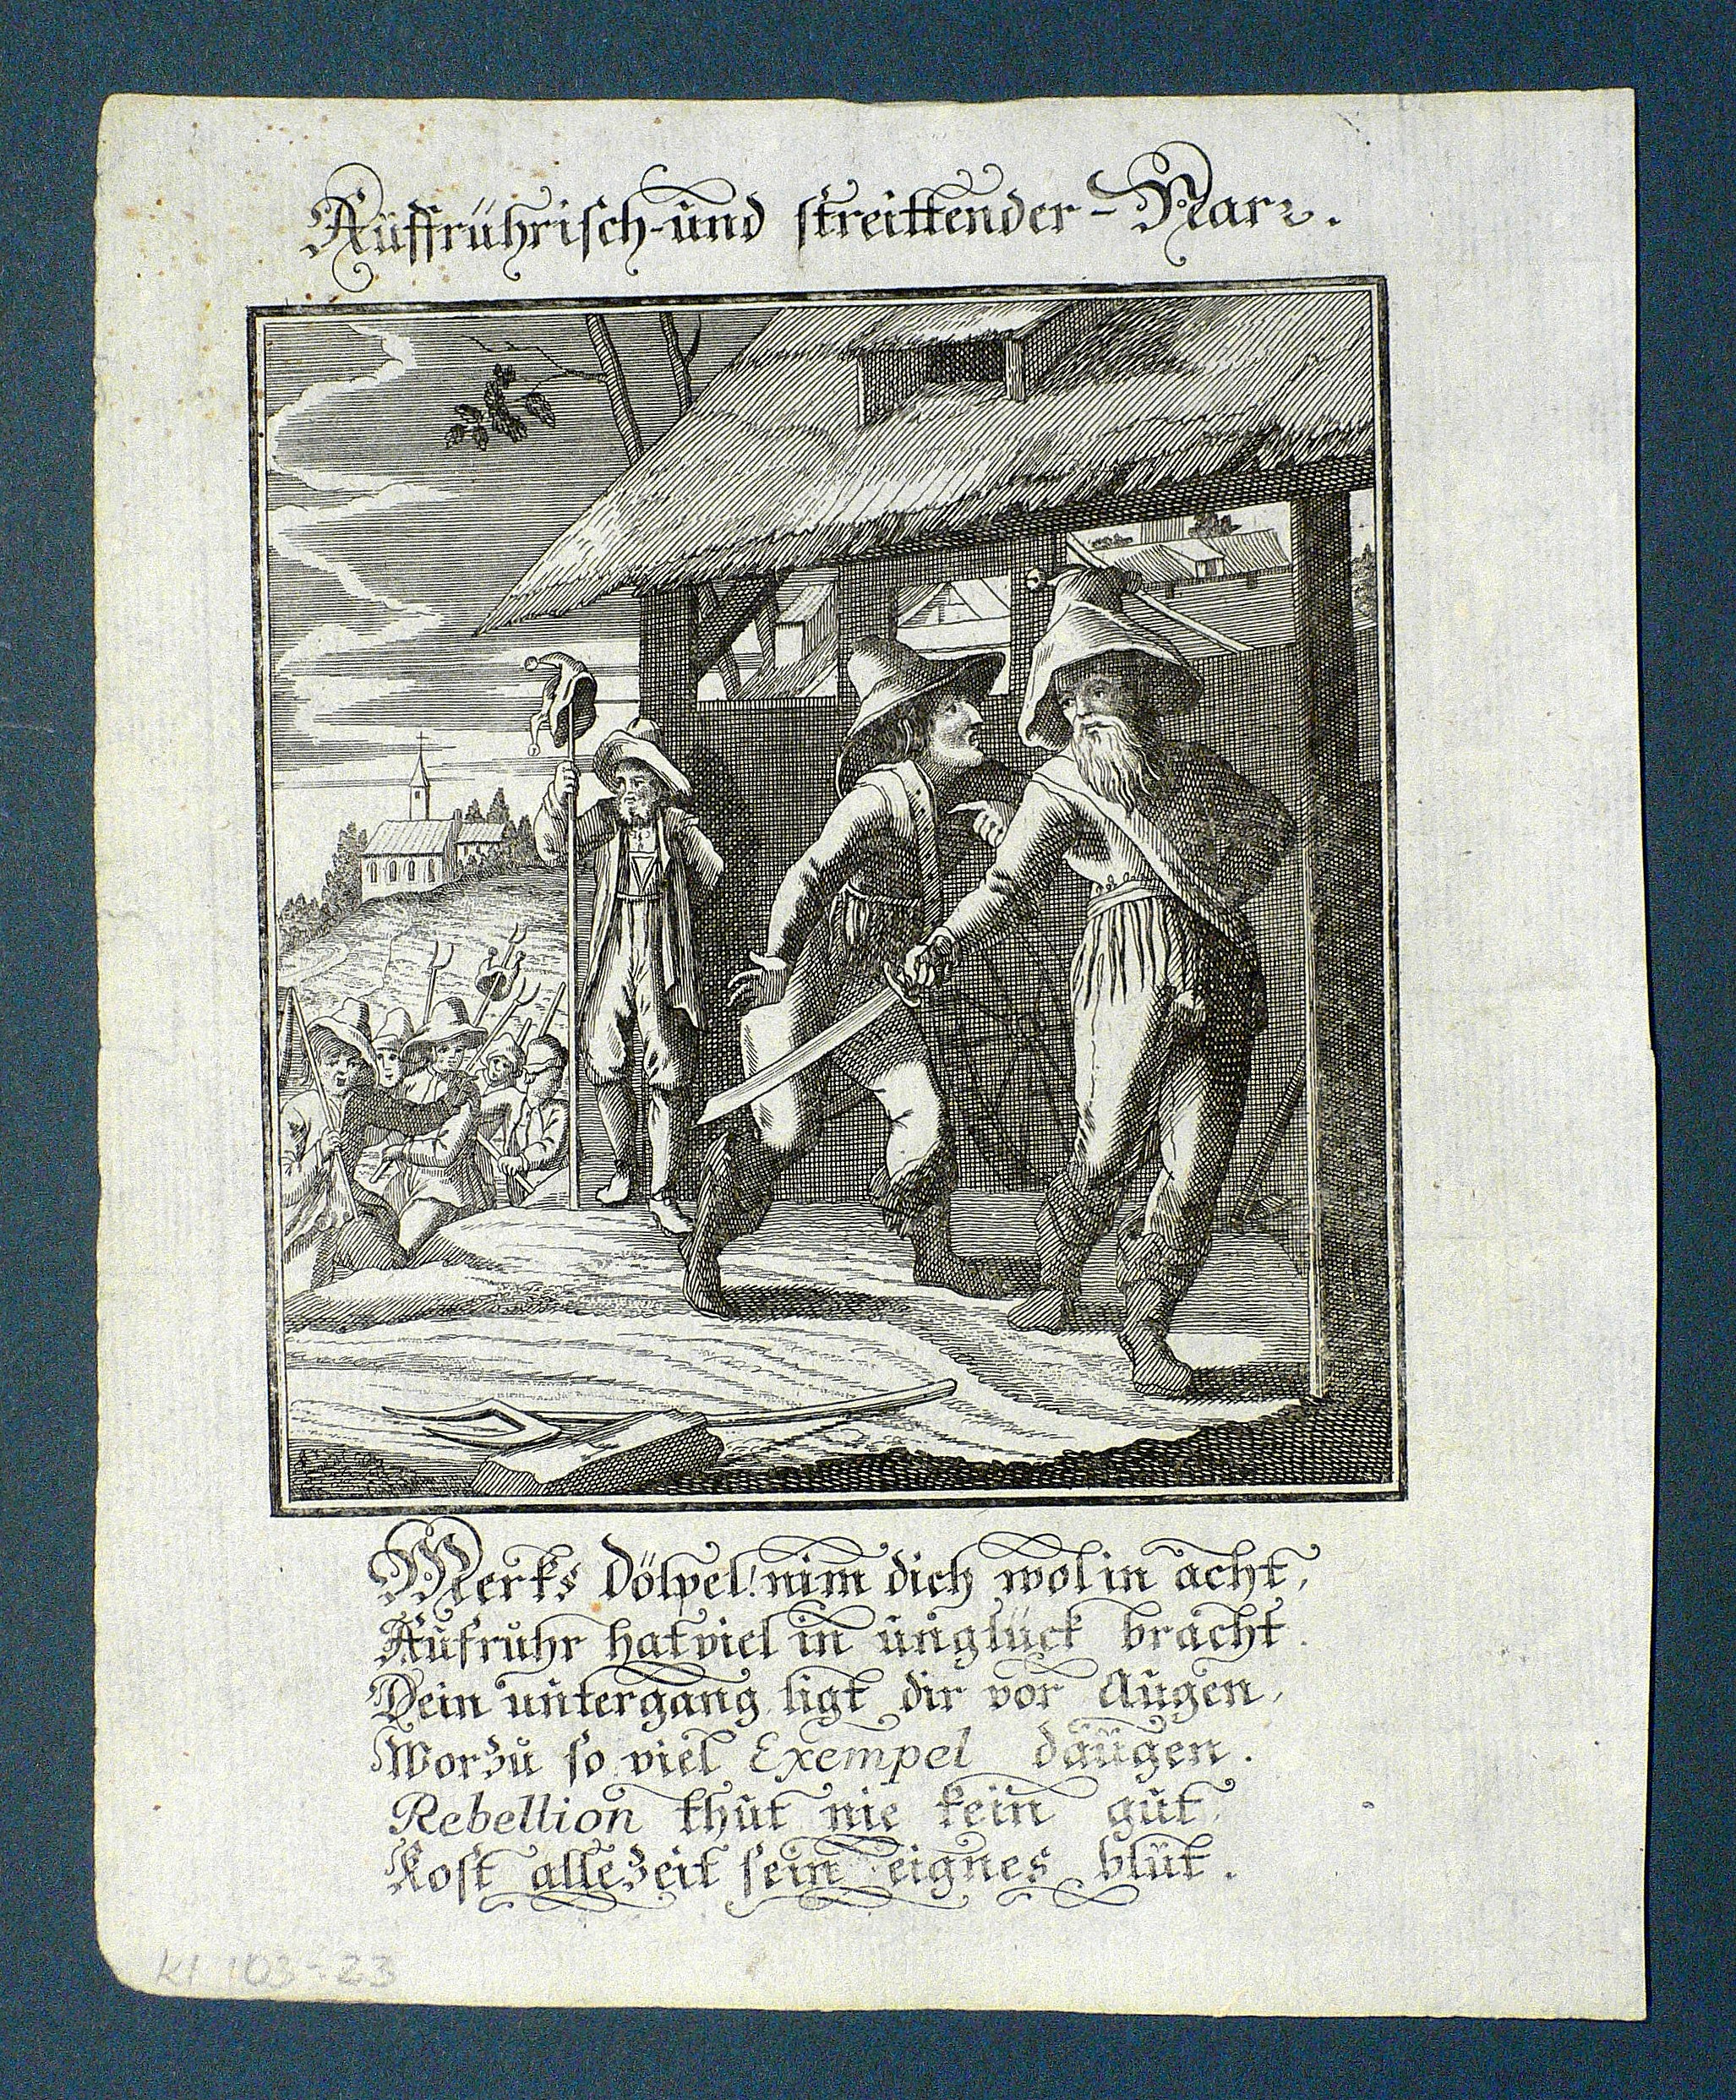 Auffrührisch-und streittender-Narr.
Merks Dölpel! nim dich wol in acht,
Aufruhr hat viel in unglück bracht.
Dein untergang ligt dir vor Augen,
Worzu so viel Exempel däugen.
Rebellion thut nie kein gut,
Kost allezeit sein eignes blut.
kl 103-23